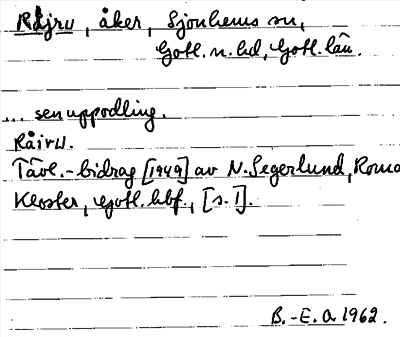 Råjru, åker, Sjonhems sn,
Gotl. n. hd, Gotl. län.
... senuppodling.
Råiru.
Tävl.-bidrag [1949] av N. Segerlund, Roma
Kloster, Gotl. hbf., [s. 1].
B.-E.A 1962.